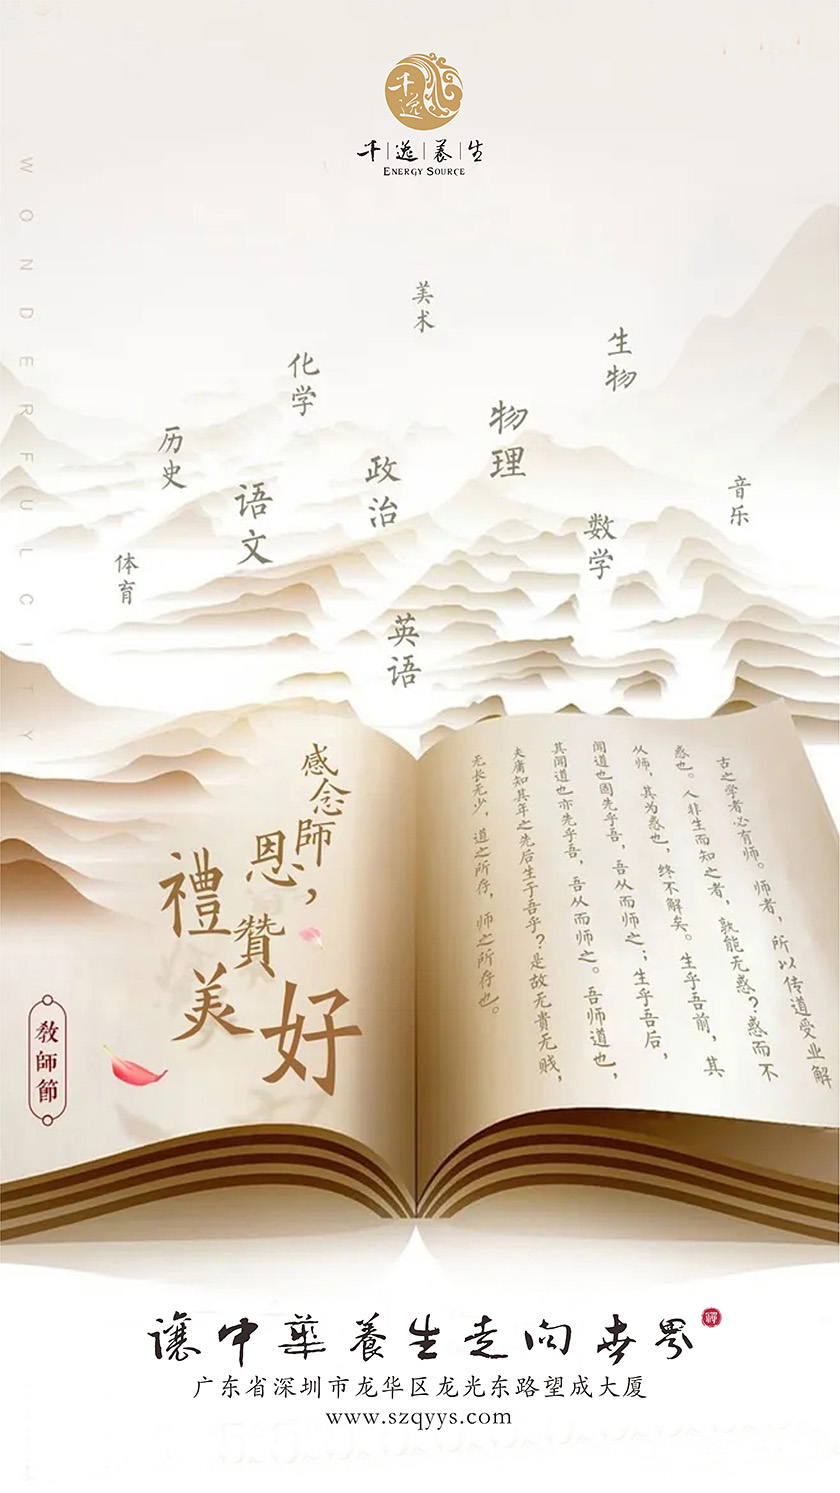 千逸
千逸養生
ENERGY SOURCE
WONDERFUL CITY
美术
化学
生物
历史
物理
政治
语文
音乐
数学
体育
英语
感念師恩，
禮贊美好
教師節
古之学者必有师。师者，所以传道受业解
惑也。人非生而知之者，孰能无惑？惑而不
从师，其为惑也，终不解矣。生乎吾前，其
闻道也固先乎吾，吾从而师之；生乎吾后，
其闻道也亦先乎吾，吾从而师之。吾师道也，
夫庸知其年之先后生于吾乎？是故无贵无贱，
无长无少，道之所存，师之所存也。
讓中華養生走向世界
广东省深圳市龙华区龙光东路望成大厦
www.szqyys.com